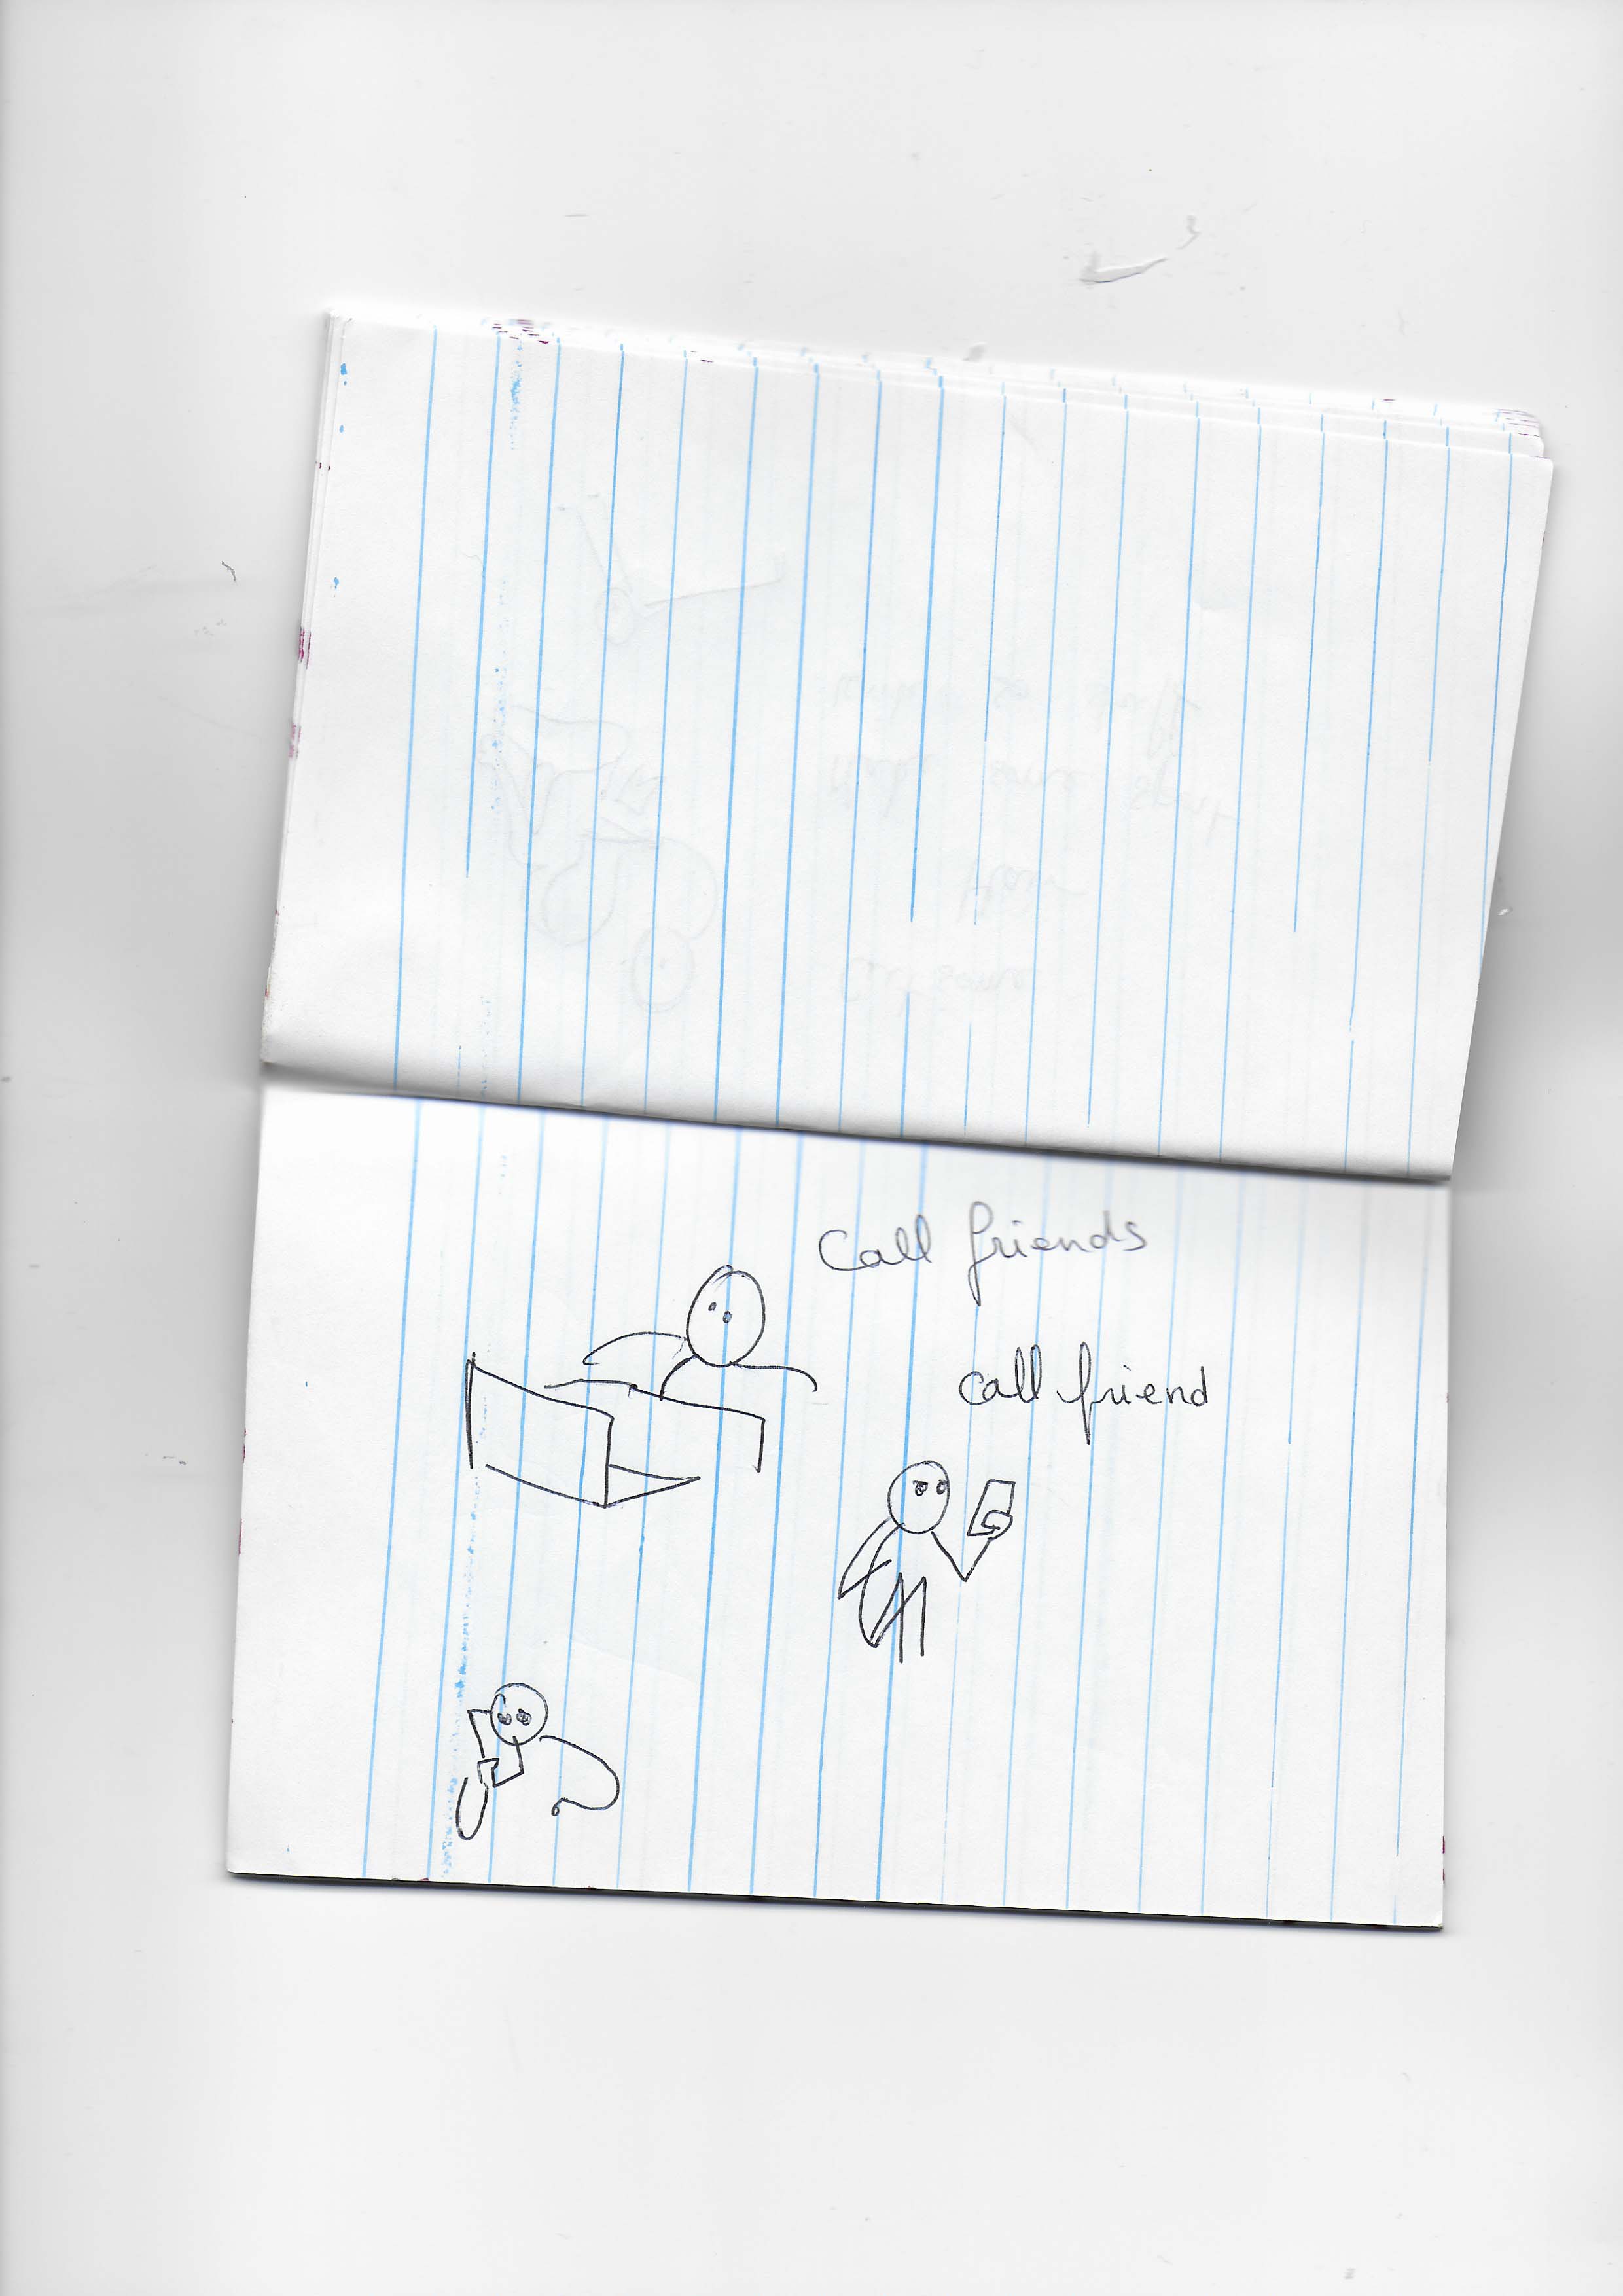 Call friends
call friend